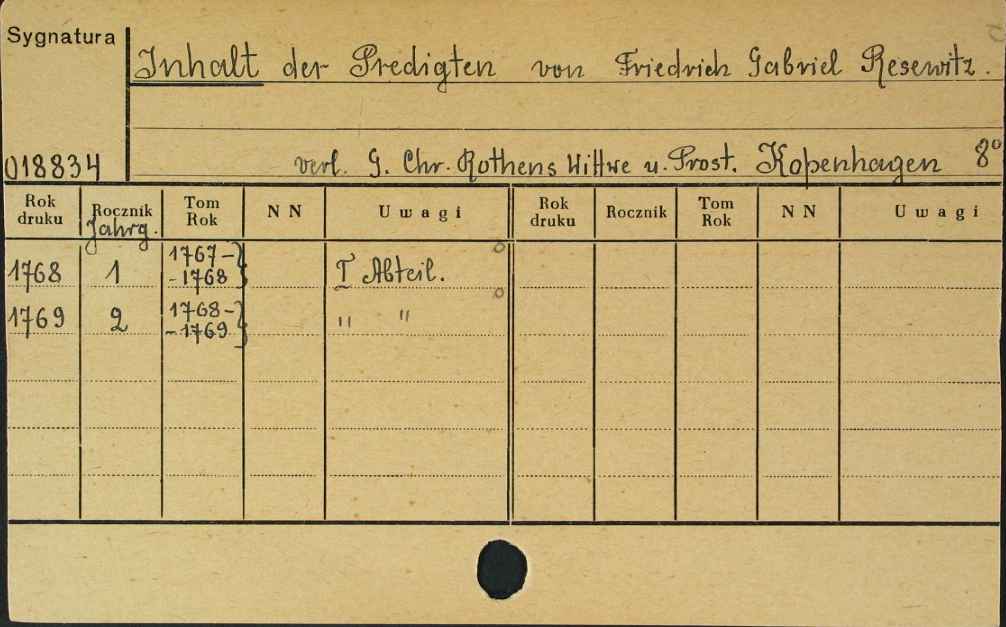 Sygnatura
Inhalt der Predigten von Friedrich Gabriel Resewitz.
018834
verl. G. Chr. Rothens Wittwe u. Prost. Kopenhagen 8°
Rok druku Rocznik Jahrg. Tom Rok N N Uwagi Rok druku Rocznik Tom Rok N N Uwagi
1768 1 1767- -1768 } I Abteil.
1769 2 1768- -1769 } " "